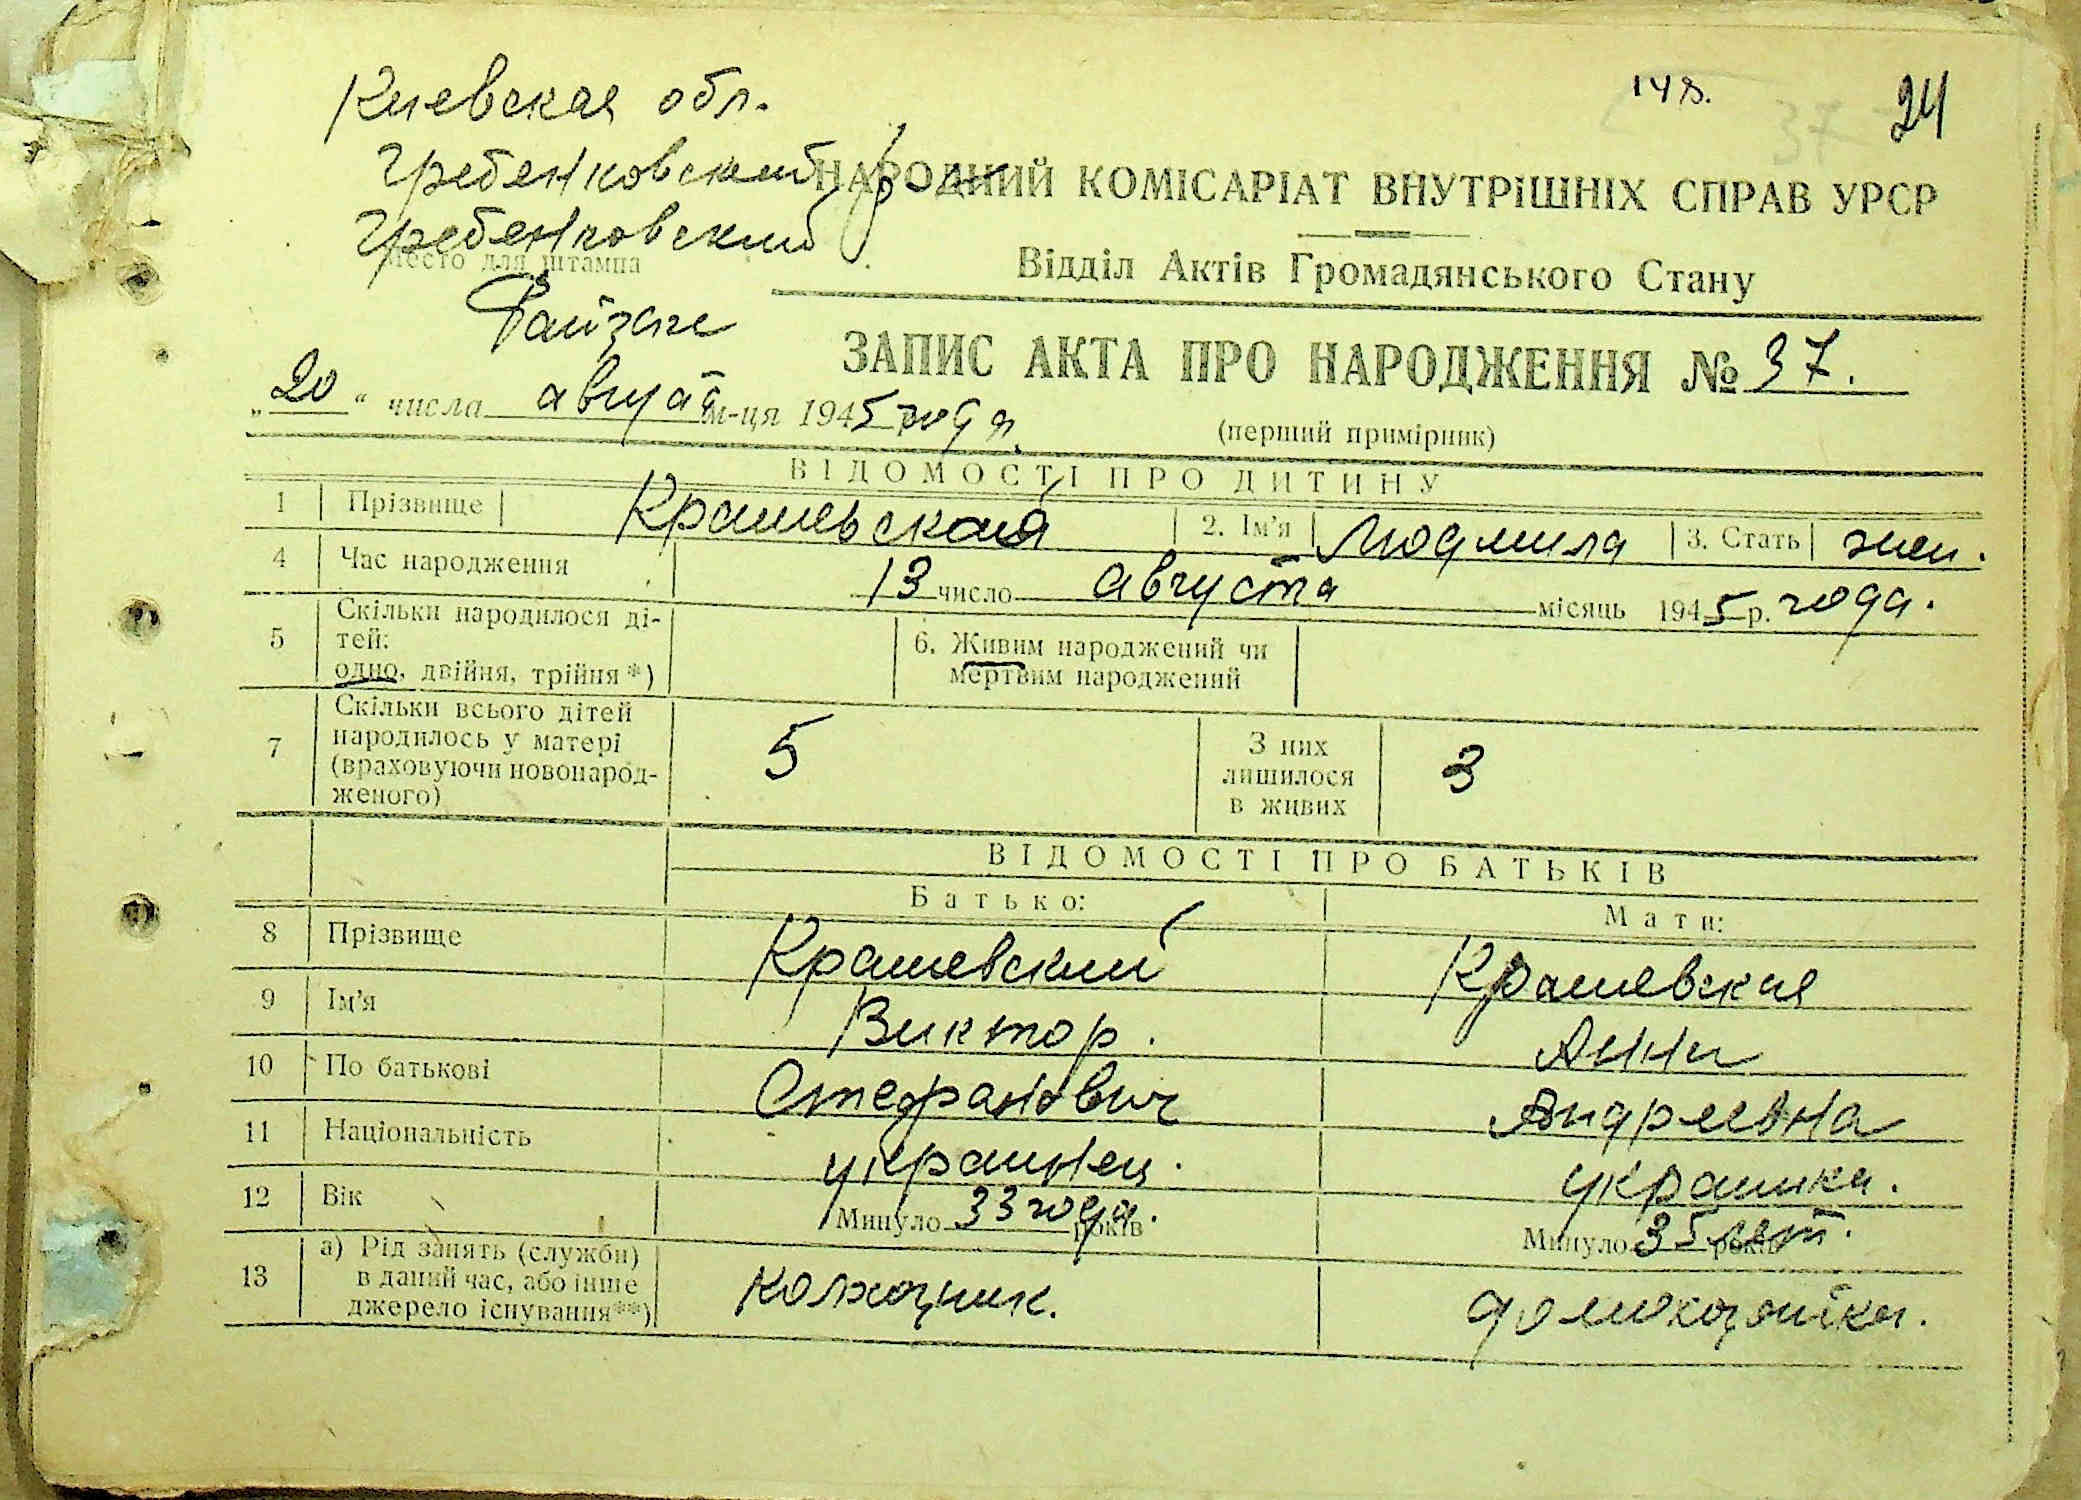 Киевская обл.
148.
24
37
Гребенковский р-н
НАРОДНИЙ КОМІСАРІАТ ВНУТРІШНІХ СПРАВ УРСР
Гребенковский
Место для штампа
Відділ Актів Громадянського Стану
Райзагс
ЗАПИС АКТА ПРО НАРОДЖЕННЯ № 37.
„20" числа августа м-ця 1945 года.
(перший примірник)
ВІДОМОСТІ ПРО ДИТИНУ
1 Прізвище Крашевская 2. Ім'я Людмила 3. Стать жен.
4 Час народження 13 число августа місяць 1945 р. года.
5 Скільки народилося ді-
тей:
одно, двійня, трійня *)
6. Живим народжений чи
мертвим народжений
7 Скільки всього дітей
народилось у матері
(враховуючи новонарод-
женого)
5
З них
лишилося
в живих
3
ВІДОМОСТІ ПРО БАТЬКІВ
Батько: Мати:
8 Прізвище Крашевский Крашевская
9 Ім'я Виктор. Анна
10 По батькові Стефанович Андреевна
11 Національність украинец. украинка.
12 Вік Минуло 33 года. років Минуло 35 лет. років
13 а) Рід занять (служби)
в даний час, або інше
джерело існування**)
колхозник. домохозяйка.